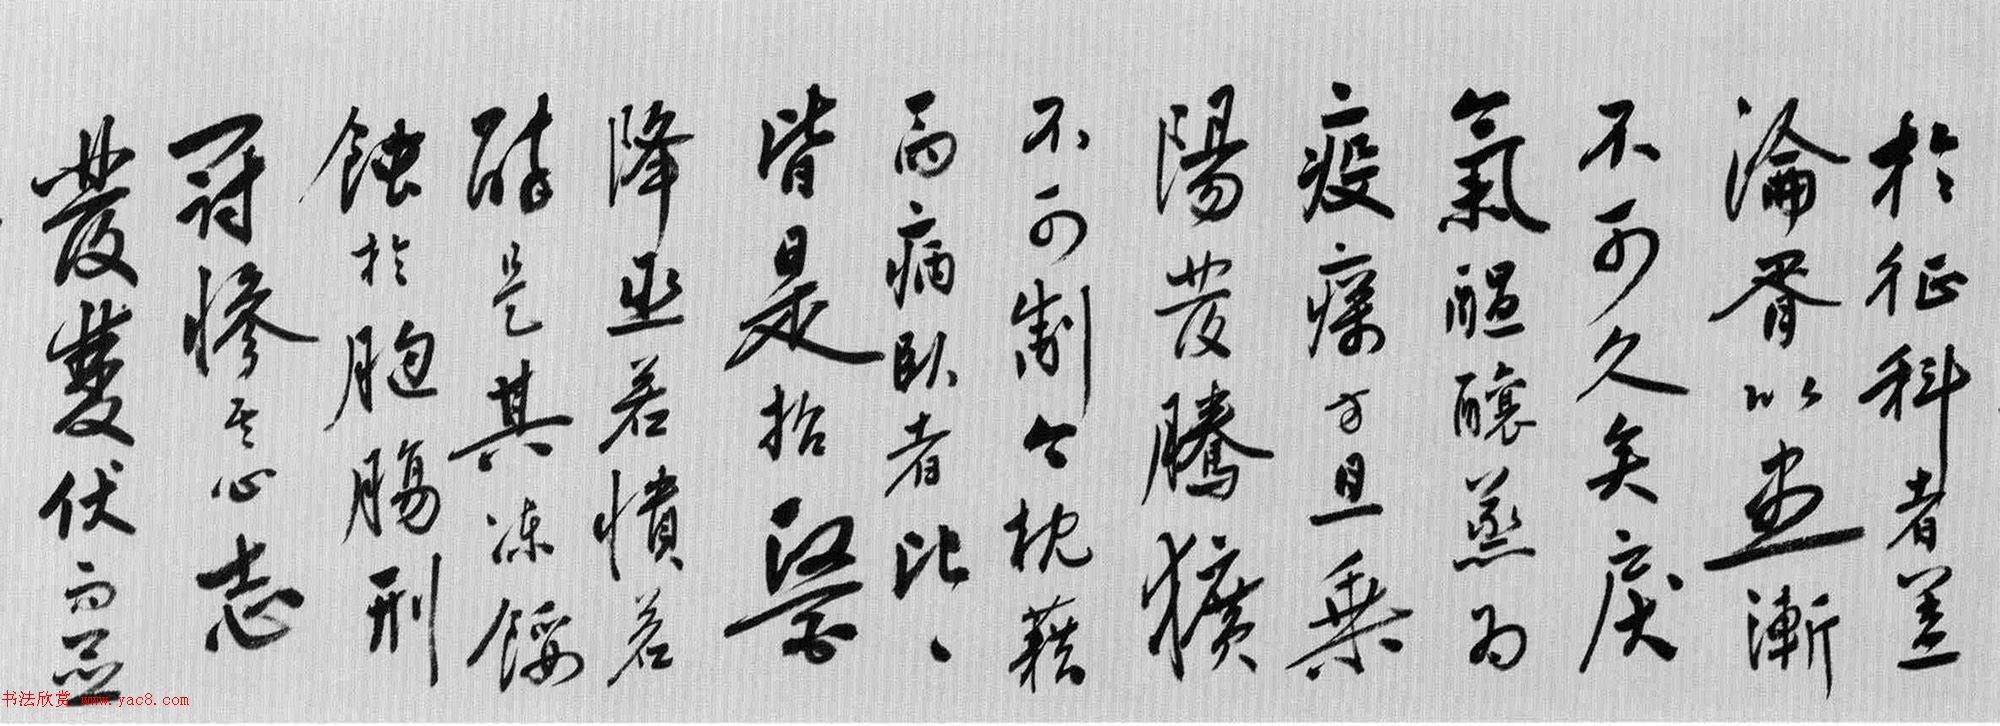 於征科者盖
淪胥以盡漸
不可久矣戾
氣醞釀蒸為
疫癘方且乘
陽發騰獷
不可制今枕藉
而病臥者比比
皆是招醫
降巫若憒若
醉是其凍餒
蝕於胞腸刑
罰慘其心志
發伏而
书法欣赏 www.yac8.com